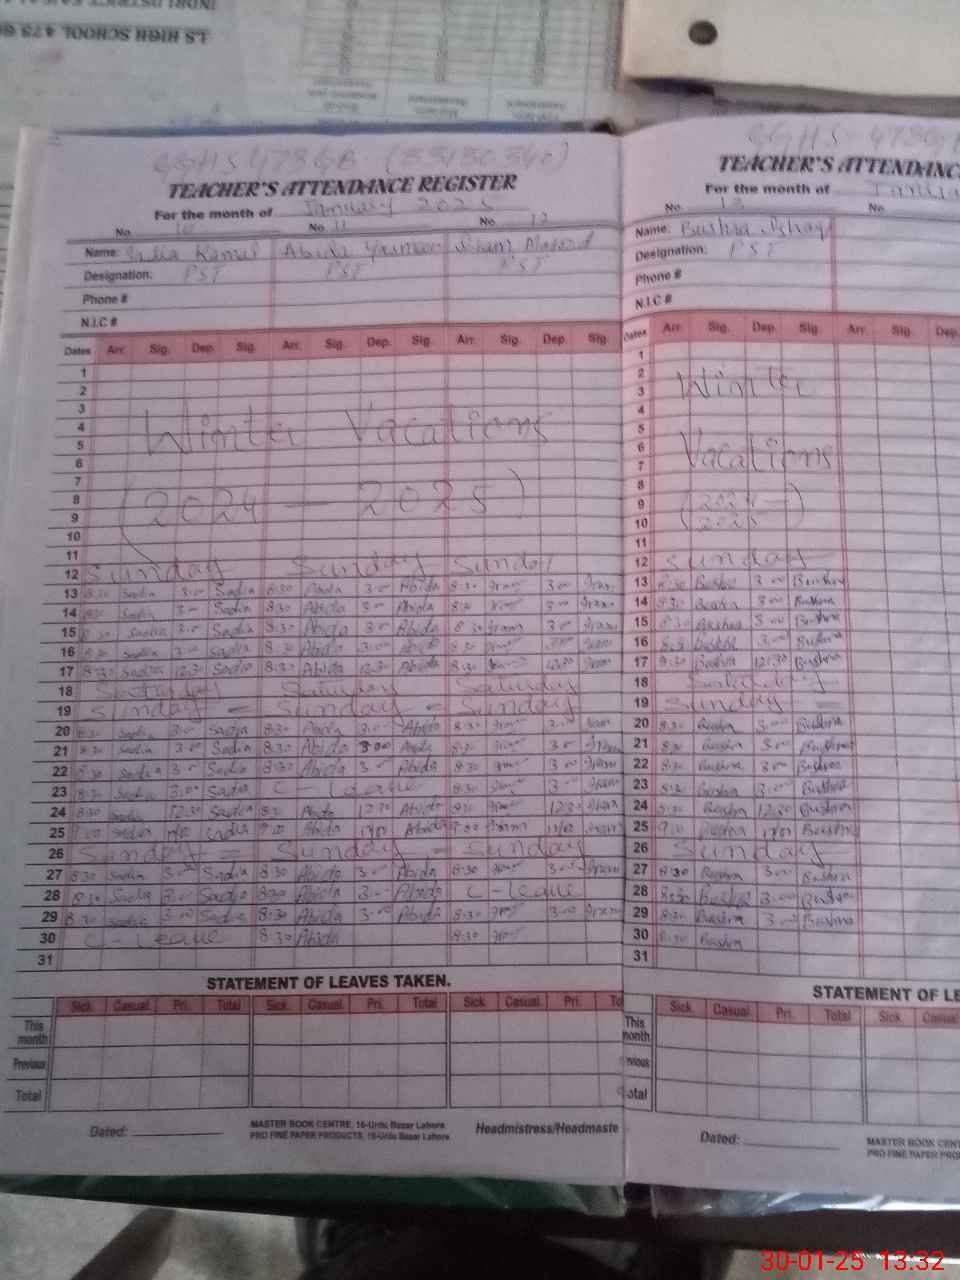 LS HIGH SCHOOL 473 G
GGHS 473 GB (33130340)
TEACHER'S ATTENDANCE REGISTER
For the month of January 2025
No. 10 No. 11 No. 12
Name: Sadia Kamal Abida Yasmeen Iram Masood
Designation: PST PST PST
Phone #
N.I.C #
Dates Arr. Sig. Dep. Sig. Arr. Sig. Dep. Sig. Arr. Sig. Dep. Sig.
1
2
3
4 Winter Vacations
5
6
7
8 (2024 — 2025)
9
10
11
12 Sunday Sunday Sunday
13 8:30 Sadia 3:00 Sadia 8:30 Abida 3:00 Abida 8:30 Iram 3:00 Iram
14 8:30 Sadia 3:00 Sadia 8:30 Abida 3:00 Abida 8:30 Iram 3:00 Iram
15 8:30 Sadia 3:00 Sadia 8:30 Abida 3:00 Abida 8:30 Iram 3:00 Iram
16 8:30 Sadia 3:00 Sadia 8:30 Abida 3:00 Abida 8:30 Iram 3:00 Iram
17 8:30 Sadia 12:30 Sadia 8:30 Abida 12:30 Abida 8:30 Iram 12:30 Iram
18 Saturday Saturday Saturday
19 Sunday — Sunday — Sunday
20 8:30 Sadia 3:00 Sadia 8:30 Abida 3:00 Abida 8:30 Iram 3:00 Iram
21 8:30 Sadia 3:00 Sadia 8:30 Abida 3:00 Abida 8:30 Iram 3:00 Iram
22 8:30 Sadia 3:00 Sadia 8:30 Abida 3:00 Abida 8:30 Iram 3:00 Iram
23 8:30 Sadia 3:00 Sadia C - Leave 8:30 Iram 3 Iram
24 8:30 Sadia 12:30 Sadia 8:30 Abida 12:30 Abida 8:30 Iram 12:30 Iram
25 9:00 Sadia 11:00 Sadia 9:00 Abida 11:00 Abida 9:00 Iram 11:00 Iram
26 Sunday — Sunday — Sunday
27 8:30 Sadia 3:00 Sadia 8:30 Abida 3:00 Abida 8:30 Iram 3:00 Iram
28 8:30 Sadia 3:00 Sadia 8:30 Abida 3:00 Abida C - Leave
29 8:30 Sadia 3:00 Sadia 8:30 Abida 3:00 Abida 8:30 Iram 3:00 Iram
30 C - Leave 8:30 Abida 8:30 Iram
31
STATEMENT OF LEAVES TAKEN.
Sick. Casual. Pri. Total Sick. Casual. Pri. Total Sick. Casual. Pri. To
This month
Previous
Total
Dated:
MASTER BOOK CENTRE, 16-Urdu Bazar Lahore.
PRO FINE PAPER PRODUCTS, 16-Urdu Bazar Lahore.
Headmistress/Headmaste
GGHS - 473GB
TEACHER'S ATTENDANC
For the month of Janua
No. 13 No.
Name: Bushra Ishaq
Designation: PST
Phone #
N.I.C #
Dates Arr. Sig. Dep. Sig. Arr. Sig. Dep.
1
2 Winter
3
4
5
6 Vacations
7
8
9 (2024 —
10 2025)
11
12 Sunday
13 8:30 Bushra 3:00 Bushra
14 8:30 Bushra 3:00 Bushra
15 8:30 Bushra 3:00 Bushra
16 8:30 Bushra 3:00 Bushra
17 8:30 Bushra 12:30 Bushra
18 Saturday
19 Sunday —
20 8:30 Bushra 3:00 Bushra
21 8:30 Bushra 3:00 Bushra
22 8:30 Bushra 3:00 Bushra
23 8:30 Bushra 3:00 Bushra
24 8:30 Bushra 12:30 Bushra
25 9:00 Bushra 11:00 Bushra
26 Sunday
27 8:30 Bushra 3:00 Bushra
28 8:30 Bushra 3:00 Bushra
29 8:30 Bushra 3:00 Bushra
30 8:30 Bushra
31
STATEMENT OF LE
Sick. Casual. Pri. Total Sick. Casual
This month
vious
otal
Dated:
MASTER BOOK CENT
PRO FINE PAPER PROD
30-01-25 13:32